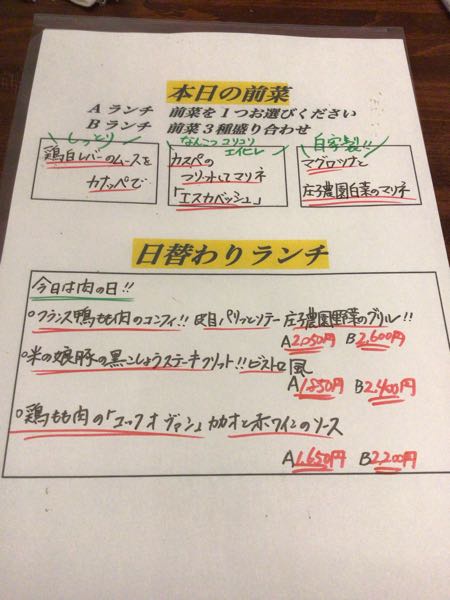 本日の前菜
A ランチ 前菜を1つお選びください
B ランチ 前菜3種盛り合わせ
しっとり
鶏白レバーのムースを
カナッペで
なんこつコリコリ
エイヒレ
カスベの
フリットしてマリネ
「エスカベッシュ」
自家製!!
マグロツナと
庄子農園白菜のマリネ
日替わりランチ
今日は肉の日!!
○フランス鴨もも肉のコンフィ!! 皮目パリッとソテー 庄子農園野菜のグリル!!
A2,050円 B2,600円
○米の娘豚の黒こしょうステーキフリット!! ビストロ風
A1,850円 B2,400円
○鶏もも肉の「コックオヴァン」カカオと赤ワインのソース
A1,650円 B2,200円